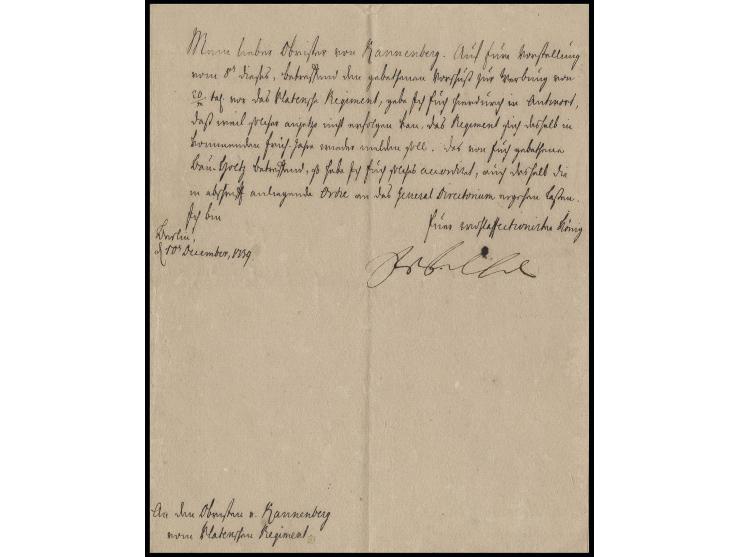 Mein lieber Obrister von Kannenberg. Auf Eure Vorstellung
vom 8t dieses, betreffend den gebethenen Vorschuß zur Werbung von
20/m rthl. vor das Platensche Regiment, gebe Ich Euch hierdurch in Antwort,
daß weil solcher anjetzo nicht erfolgen kan, das Regiment sich deshalb in
kommenden Früh-Jahre wieder melden soll. Das von Euch gebethene
Bau-Holtz betreffend, so habe Ich Euch solches accordiret, auch deshalb die
in abschrift anliegende Ordre an das General Directorium ergehen laßen.
Ich bin
Euer wohlaffectionirter König
Berlin,
d 10t December, 1739.
An den Obristen v. Kannenberg
vom Platenschen Regiment